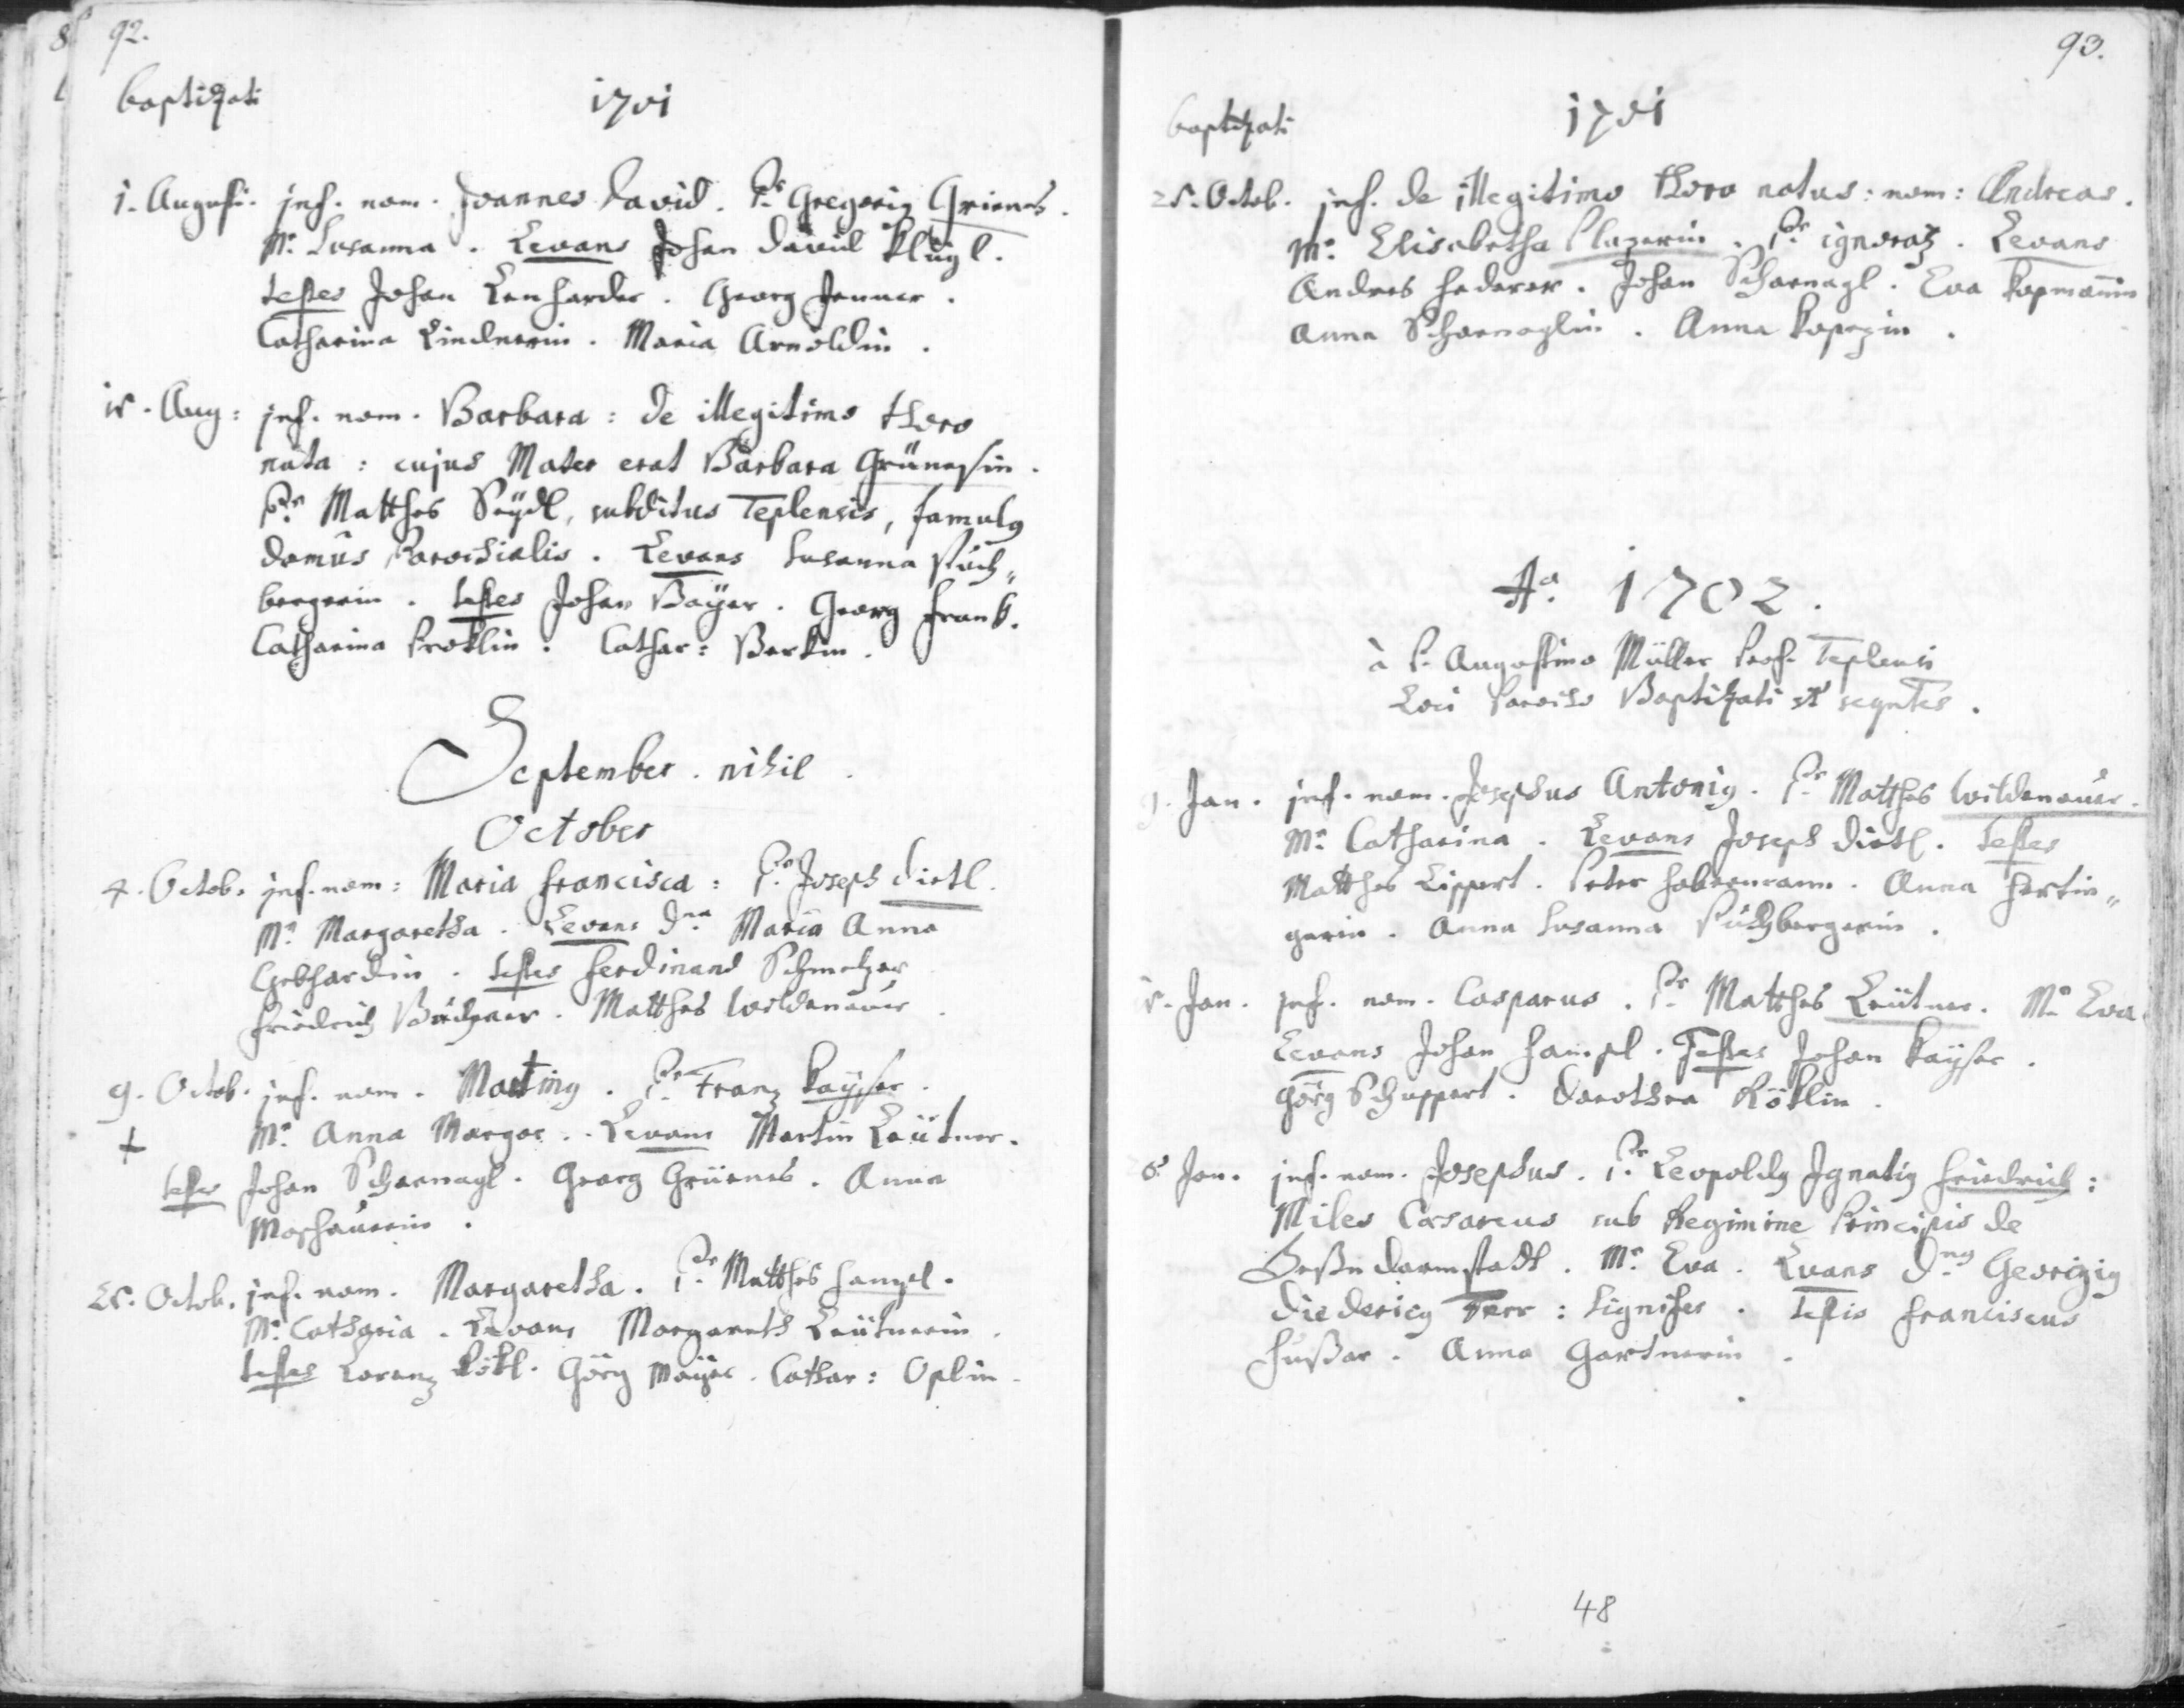 92.
baptizati 1701
1. Augusti. inf. nom. Joannes David. Pr. Gregorig Grienes.
Mr. Susanna. Levans Johan David Klügl.
testes Johan Lenharder. Georg Jenner.
Catharina Lindnerin. Maria Arnoldin.
15. Aug: inf. nom. Barbara: de illegitimo thoro
nata: cujus Mater erat Barbara
Pr. Matthes Seÿdl, subditus Teplensis, famulg
domus Parochialis. Levans Susanna Puch„
bergerin. testes Johan Baÿer. Georg Frank.
Catharina Cathar:
September. nihil.
October
4. Octob. inf. nom: Maria Francisca: Pr. Joseph Dietl.
Mr. Margaretha. Levans Dna Maria Anna
Gebhardin. testes Ferdinand Schmelzer
Friedrich Matthes Wildenauer.
9. Octob. inf. nom. Marting. Pr. Franz Kaÿser.
+ Mr. Anna Margar.. Levans Martin Leütner.
testes Johan Scharnagl. Georg Grüenes. Anna
Moshauerin.
25. Octob. inf. nom. Margaretha. Pr. Matthes Hampl.
Mr. Catharia. Levans Margareth Leütnerin.
testes Lorenz Rökl. Görg Maÿer. Cathar: Oplin.
93.
baptizati 1701
25. Octob. inf. de illegitimo thoro natus: nom: Andreas.
Mr. Elisabetha Plazerin. Pr. ignoratz. Levans
Andres Hederer. Johan Scharnagl. Eva
Anna Scharnaglin. Anna
Ao. 1702.
à P. Augustino Müller Prof. Teplensi
Loci Parocho Baptizati st seqntes.
9. Jan. inf. nom. Josephus Antonig. Pr. Matthes Wildenauer.
Mr. Catharina. Levans Joseph Dietl. Testes
Matthes Lippert. Peter Habermann. Anna Hertin„
gerin. Anna Susanna Puchbergerin.
Jan. inf. nom. Casparus. Pr. Matthes Leütner. Mr. Eva.
Levans Johan Hampl. Testes Johan Kaÿser.
Görg Schuppert. Dorothea Röklin.
Jan. inf. nom. Josephus. Pr. Leopoldg Ignatig Friedrich:
Miles Cæsareus sub Regimine Principis de
Heßn Darmstadt. Mr. Eva. Levans Dng Georgig
Diederig : signifer. testis Franciscus
Hußar. Anna Gartnerin.
48